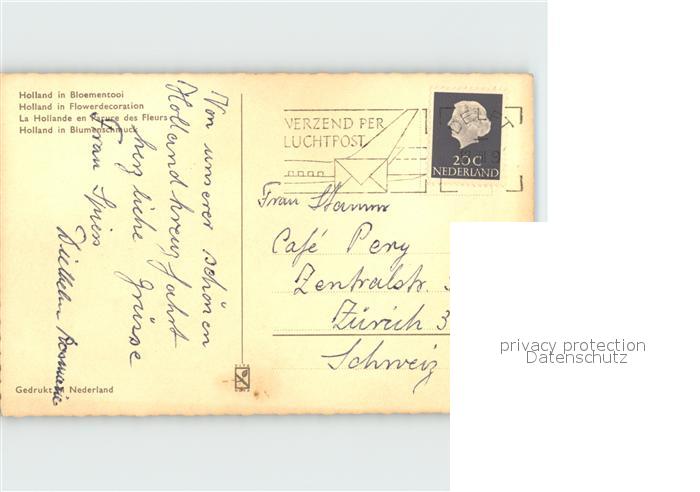 Holland in Bloementooi
Holland in Flowerdecoration
La Hollande en Parure des Fleurs
Holland in Blumenschmuck
Von unserer schönen
Holland kreuzfahrt
herzliche Grüsse
Frau Spiess
Rosmarie
Gedrukt in Nederland
VERZEND PER
LUCHTPOST
DELFT
20C
NEDERLAND
Frau Stamm
Café Pery
Zentralstr.
Zürich 3
Schweiz
privacy protection
Datenschutz